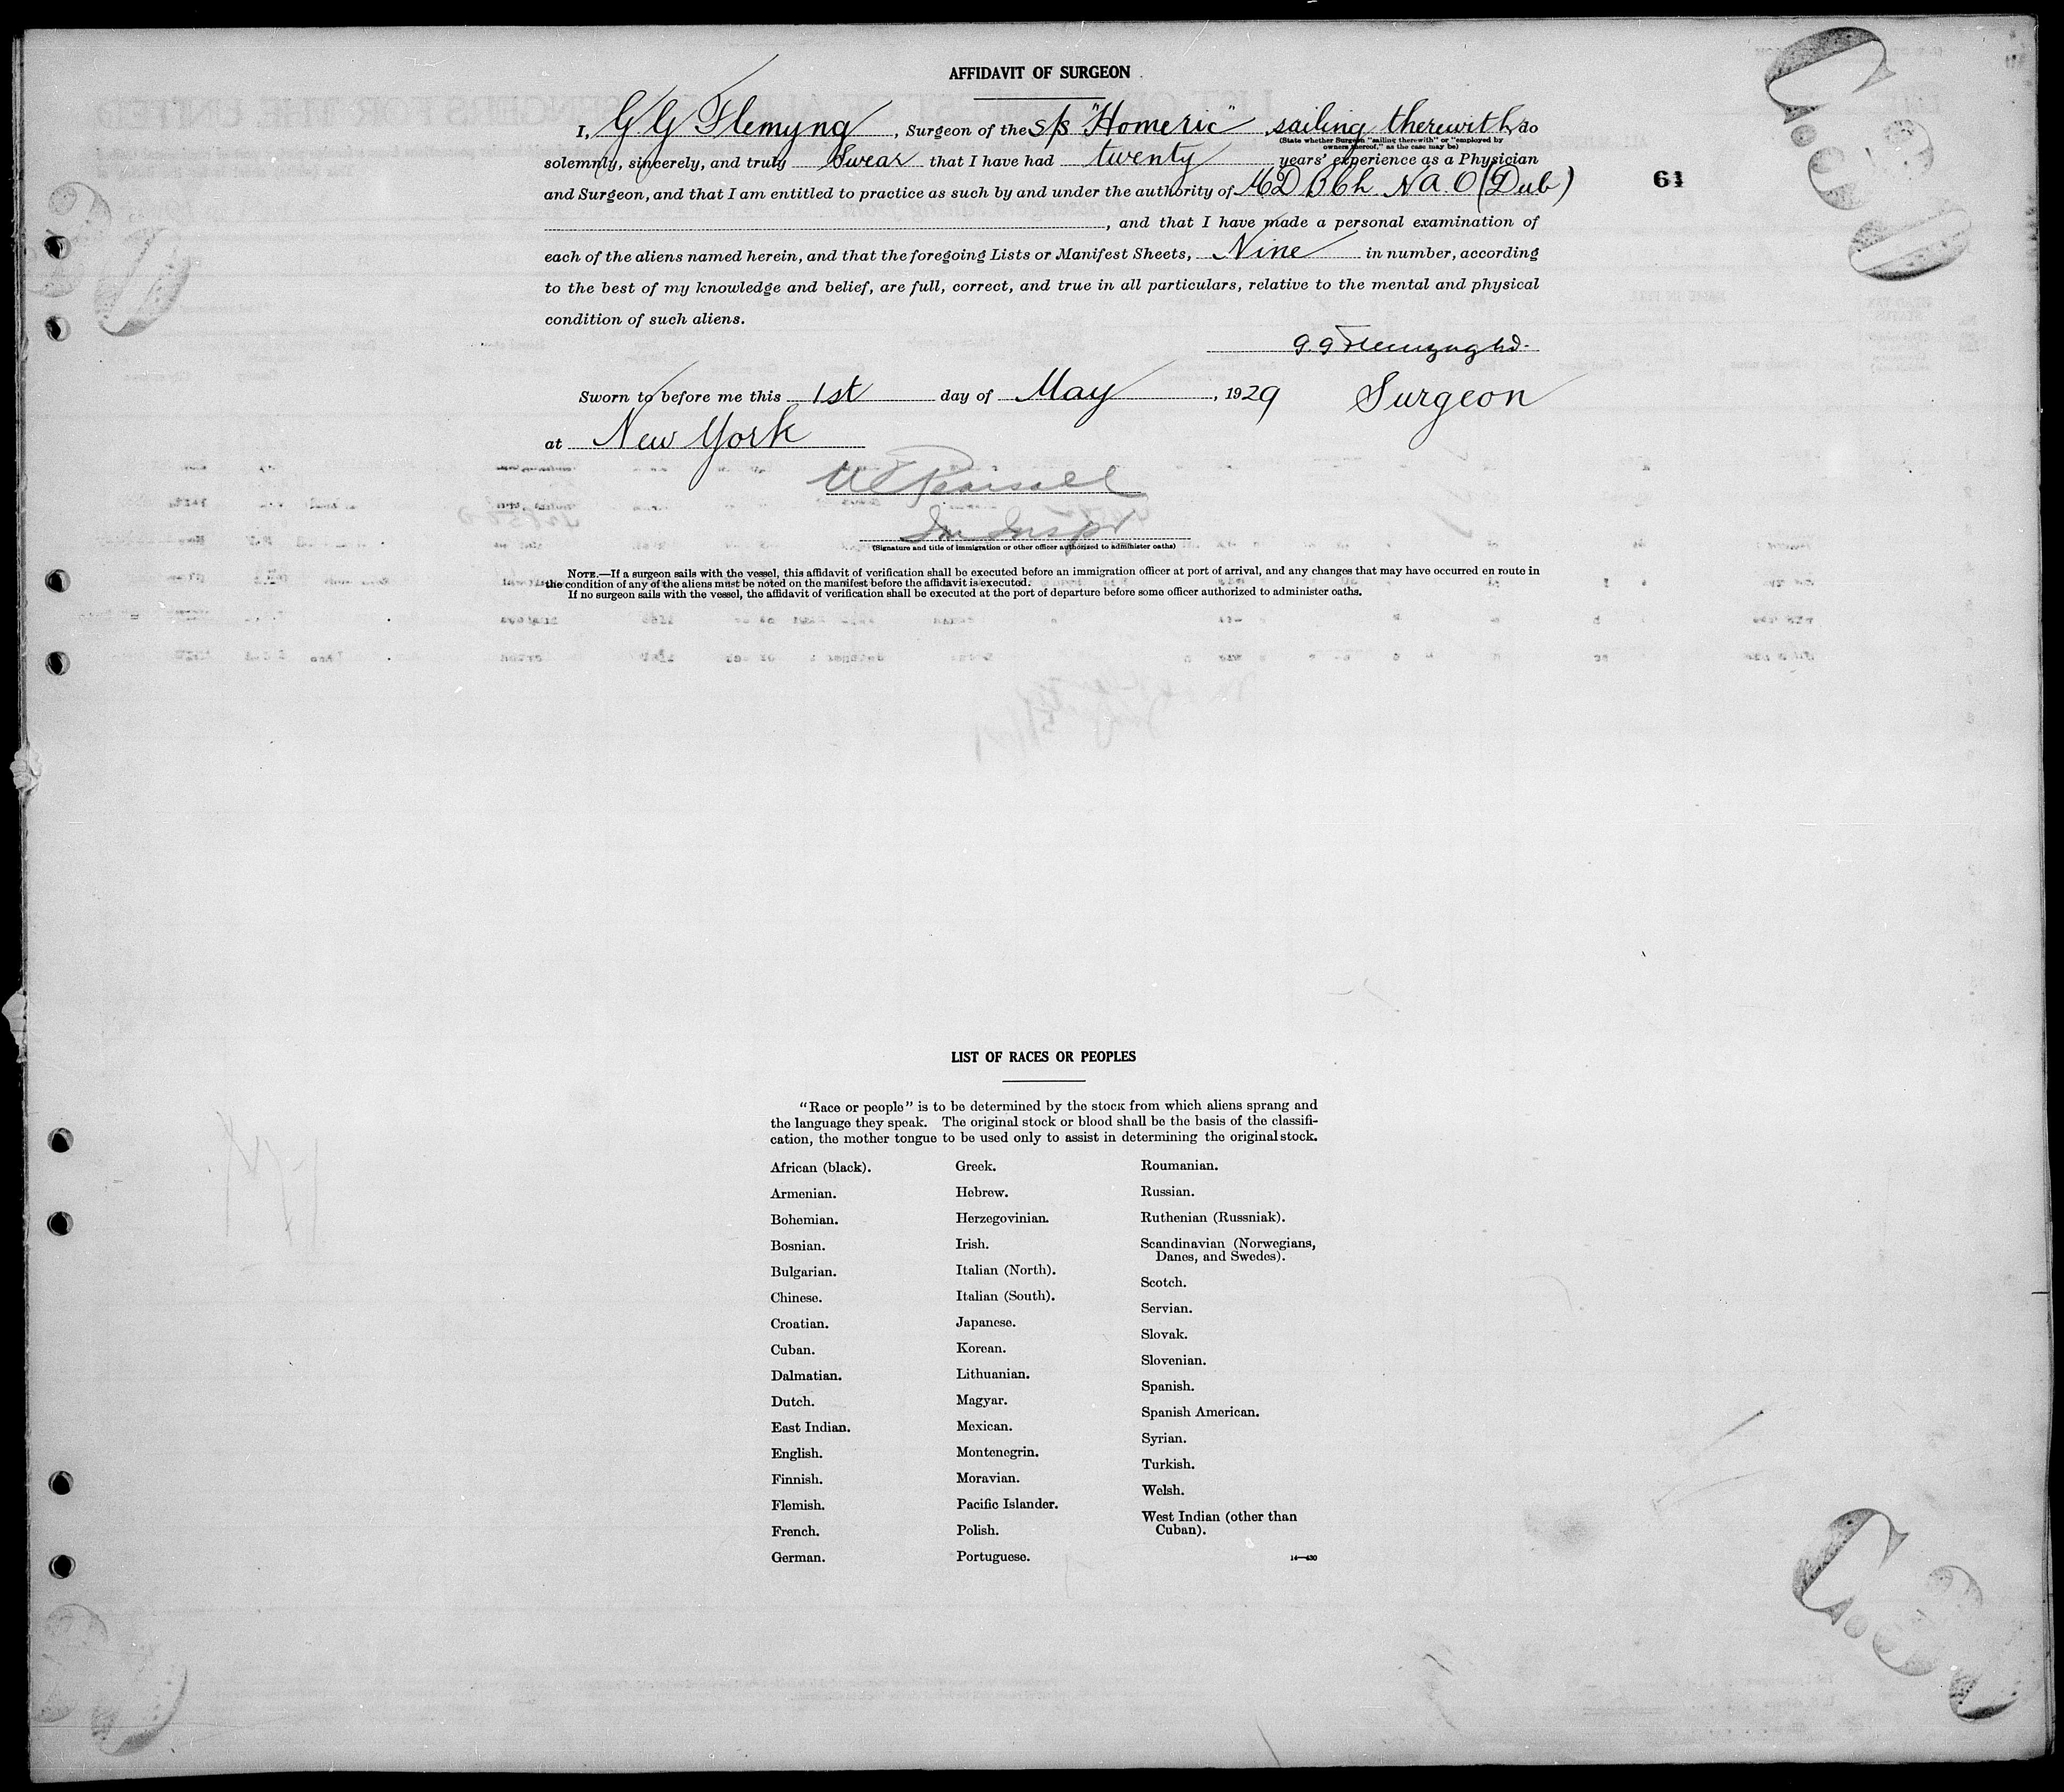 AFFIDAVIT OF SURGEON
I, G G Flemyng, Surgeon of the s/s "Homeric", sailing therewith, do
(State whether Surgeon "sailing therewith" or "employed by
owners thereof," as the case may be)
solemnly, sincerely, and truly Swear that I have had twenty years' experience as a Physician
and Surgeon, and that I am entitled to practice as such by and under the authority of M.D B Ch N A. O (Dub)
61
, and that I have made a personal examination of
each of the aliens named herein, and that the foregoing Lists or Manifest Sheets, Nine in number, according
to the best of my knowledge and belief, are full, correct, and true in all particulars, relative to the mental and physical
condition of such aliens.
G. G Flemyng M.D.
Sworn to before me this 1st day of May, 1929 Surgeon
at New York
Pearsall
Im Inspr
(Signature and title of immigration or other officer authorized to administer oaths)
NOTE.—If a surgeon sails with the vessel, this affidavit of verification shall be executed before an immigration officer at port of arrival, and any changes that may have occurred en route in
the condition of any of the aliens must be noted on the manifest before the affidavit is executed.
If no surgeon sails with the vessel, the affidavit of verification shall be executed at the port of departure before some officer authorized to administer oaths.
LIST OF RACES OR PEOPLES
"Race or people" is to be determined by the stock from which aliens sprang and
the language they speak. The original stock or blood shall be the basis of the classifi-
cation, the mother tongue to be used only to assist in determining the original stock.
African (black).
Armenian.
Bohemian.
Bosnian.
Bulgarian.
Chinese.
Croatian.
Cuban.
Dalmatian.
Dutch.
East Indian.
English.
Finnish.
Flemish.
French.
German.
Greek.
Hebrew.
Herzegovinian.
Irish.
Italian (North).
Italian (South).
Japanese.
Korean.
Lithuanian.
Magyar.
Mexican.
Montenegrin.
Moravian.
Pacific Islander.
Polish.
Portuguese.
Roumanian.
Russian.
Ruthenian (Russniak).
Scandinavian (Norwegians,
Danes, and Swedes).
Scotch.
Servian.
Slovak.
Slovenian.
Spanish.
Spanish American.
Syrian.
Turkish.
Welsh.
West Indian (other than
Cuban).
14—430